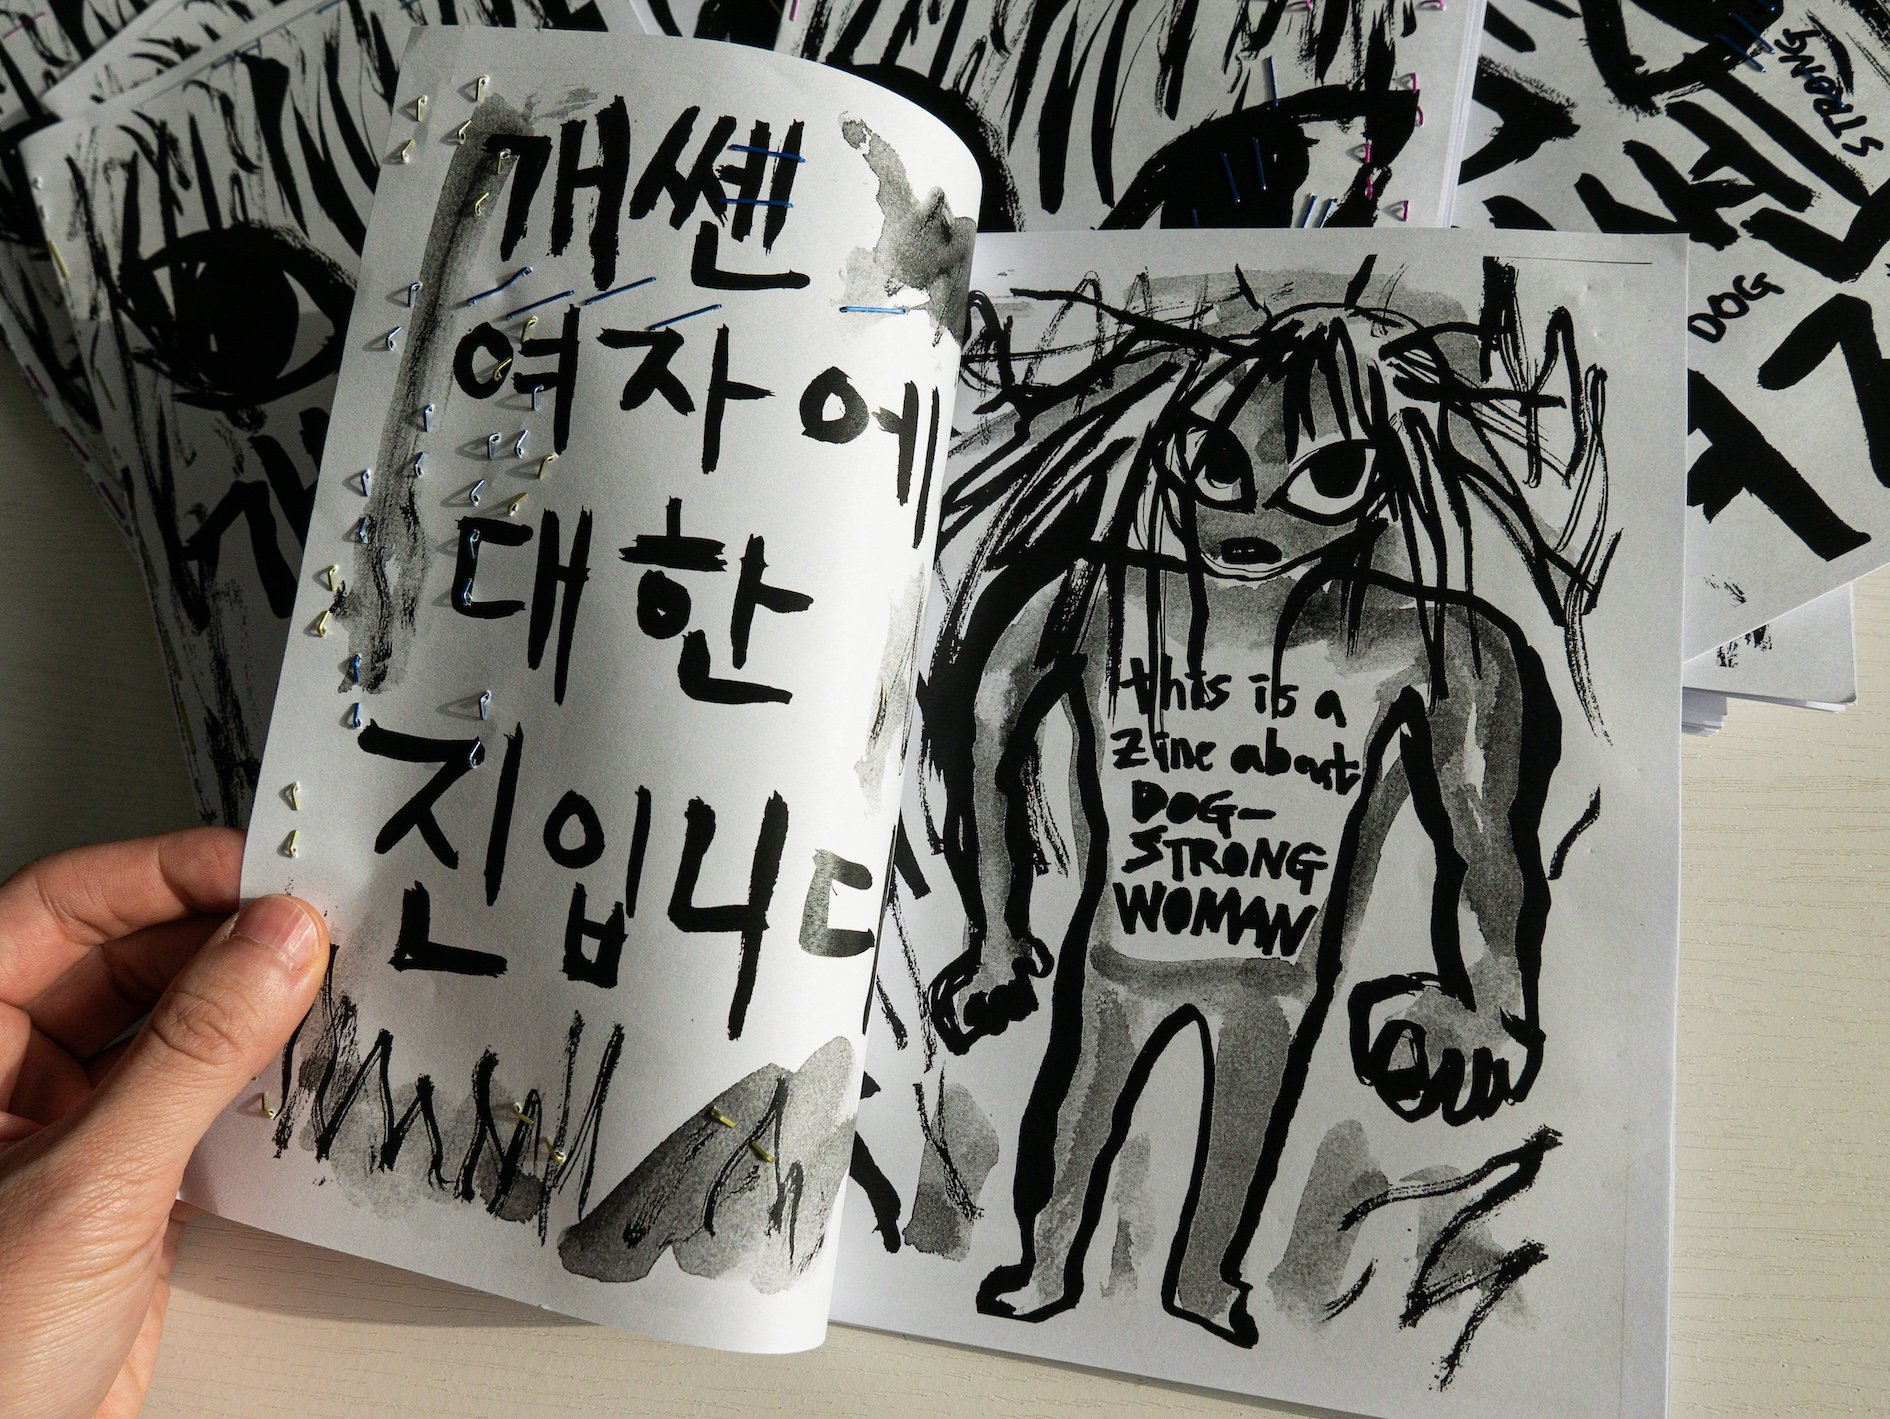 개쎈
여자에
대한
진입니다
this is a
zine about
DOG-
STRONG
WOMAN
STRONG
DOG